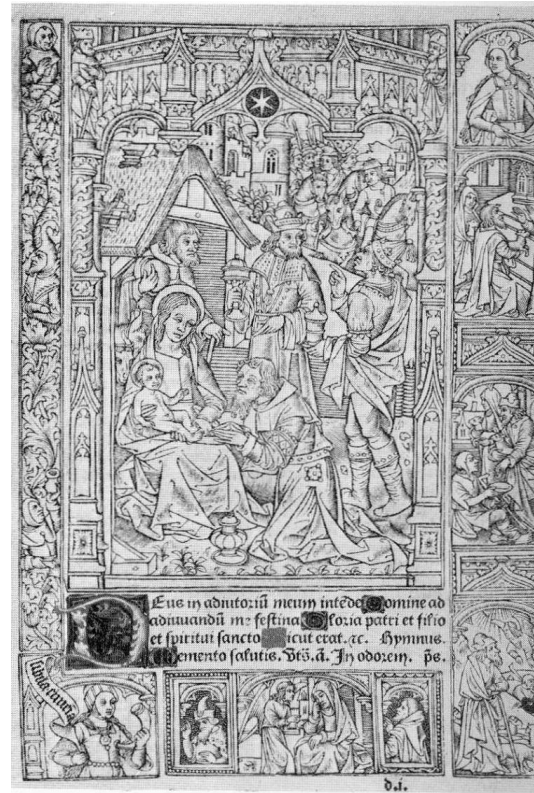 DEus in adiutoriū meum intēde Domine ad
adiuuandū me festina Gloria patri et filio
et spiritui sancto Sicut erat. ⁊c. Hymnus.
Memento salutis. Vts̄. ā. In odorem. p̄s.
d.i.